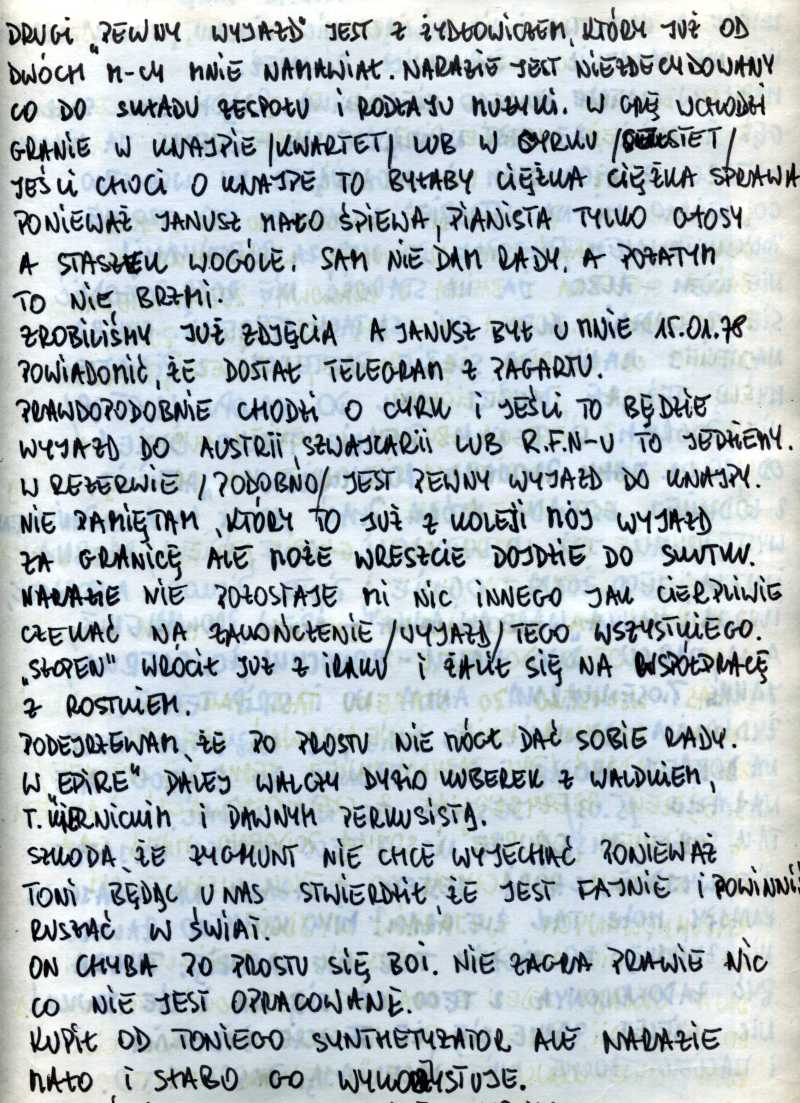 DRUGI „PEWNY WYJAZD" JEST Z ŻYDŁOWICZEM, KTÓRY JUŻ OD
DWÓCH M-CY MNIE NAMAWIAŁ. NARAZIE JEST NIEZDECYDOWANY
CO DO SKŁADU ZESPOŁU I RODZAJU MUZYKI. W GRĘ WCHODZI
GRANIE W KNAJPIE /KWARTET/ LUB W CYRKU /SEKSTET/
JEŚLI CHOCI O KNAJPĘ TO BYŁABY CIĘŻKA CIĘŻKA SPRAWA
PONIEWAŻ JANUSZ MAŁO ŚPIEWA, PIANISTA TYLKO GŁOSY
A STASZEK WOGÓLE. SAM NIE DAM RADY, A POZATYM
TO NIE BRZMI.
ZROBILIŚMY JUŻ ZDJĘCIA A JANUSZ BYŁ U MNIE 15.01.78
POWIADOMIĆ, ŻE DOSTAŁ TELEGRAM Z PAGARTU.
PRAWDOPODOBNIE CHODZI O CYRK I JEŚLI TO BĘDZIE
WYJAZD DO AUSTRII, SZWAJCARII LUB R.F.N-U TO JEDZIEMY.
W REZERWIE /PODOBNO/ JEST PEWNY WYJAZD DO KNAJPY.
NIE PAMIĘTAM, KTÓRY TO JUŻ Z KOLEJI MÓJ WYJAZD
ZA GRANICĘ ALE MOŻE WRESZCIE DOJDZIE DO SKUTKU.
NARAZIE NIE POZOSTAJE MI NIC INNEGO JAK CIERPLIWIE
CZEKAĆ NA ZAKOŃCZENIE /WYJAZD/ TEGO WSZYSTKIEGO.
„SZOPEN" WRÓCIŁ JUŻ Z IRAKU I ŻALIŁ SIĘ NA WSPÓŁPRACĘ
Z ROSTKIEM.
PODEJRZEWAM, ŻE PO PROSTU NIE MÓGŁ DAĆ SOBIE RADY.
W „EPIRE" DALEJ WALCZY DYZIO KUBEREK Z WALDKIEM,
T. BIERNICKIM I DAWNYM PERKUSISTĄ.
SZKODA, ŻE ZYGMUNT NIE CHCE WYJECHAĆ PONIEWAŻ
TONI BĘDĄC U NAS STWIERDZIŁ, ŻE JEST FAJNIE I POWINNIŚMY
RUSZAĆ W ŚWIAT.
ON CHYBA PO PROSTU SIĘ BOI. NIE ZAGRA PRAWIE NIC
CO NIE JEST OPRACOWANE.
KUPIŁ OD TONIEGO SYNTHETYZATOR ALE NARAZIE
MAŁO I SŁABO GO WYKORZYSTUJE.